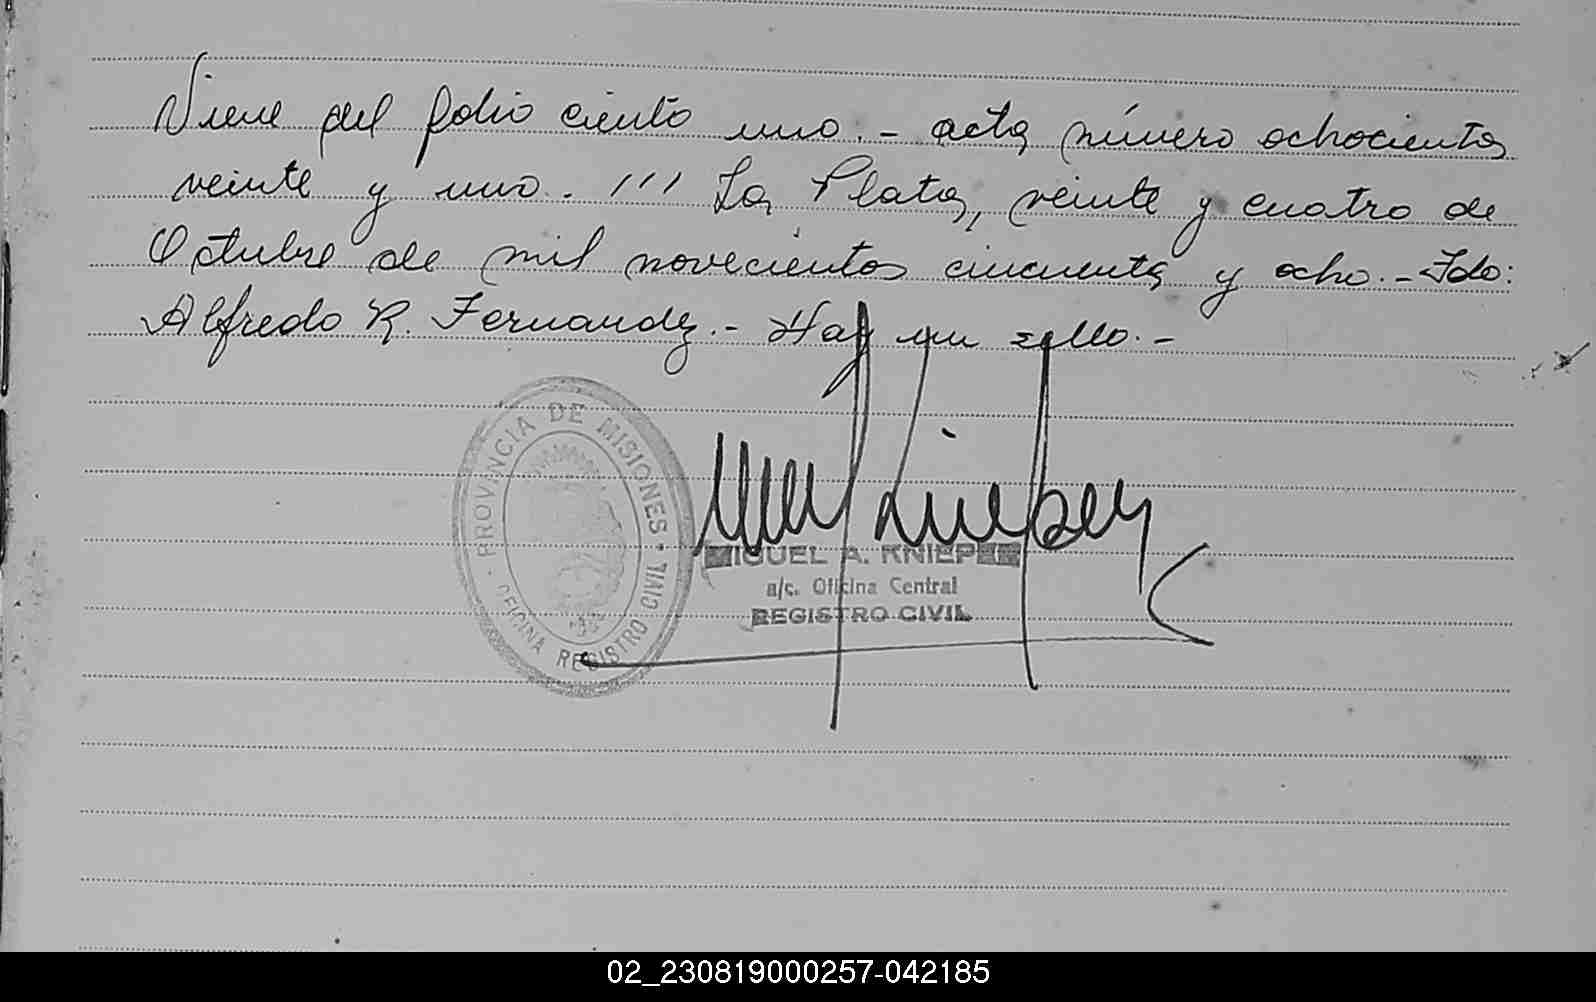 Viene del folio ciento uno.- acta número ochocientos
veinte y uno. ''' La Plata, veinte y cuatro de
Octubre de mil novecientos cincuenta y ocho.- Fdo:
Alfredo R. Fernandez.- Hay un sello.-
PROVINCIA DE MISIONES
OFICINA REGISTRO CIVIL
MIGUEL A. KNIEPER
a/c. Oficina Central
REGISTRO CIVIL
02_230819000257-042185